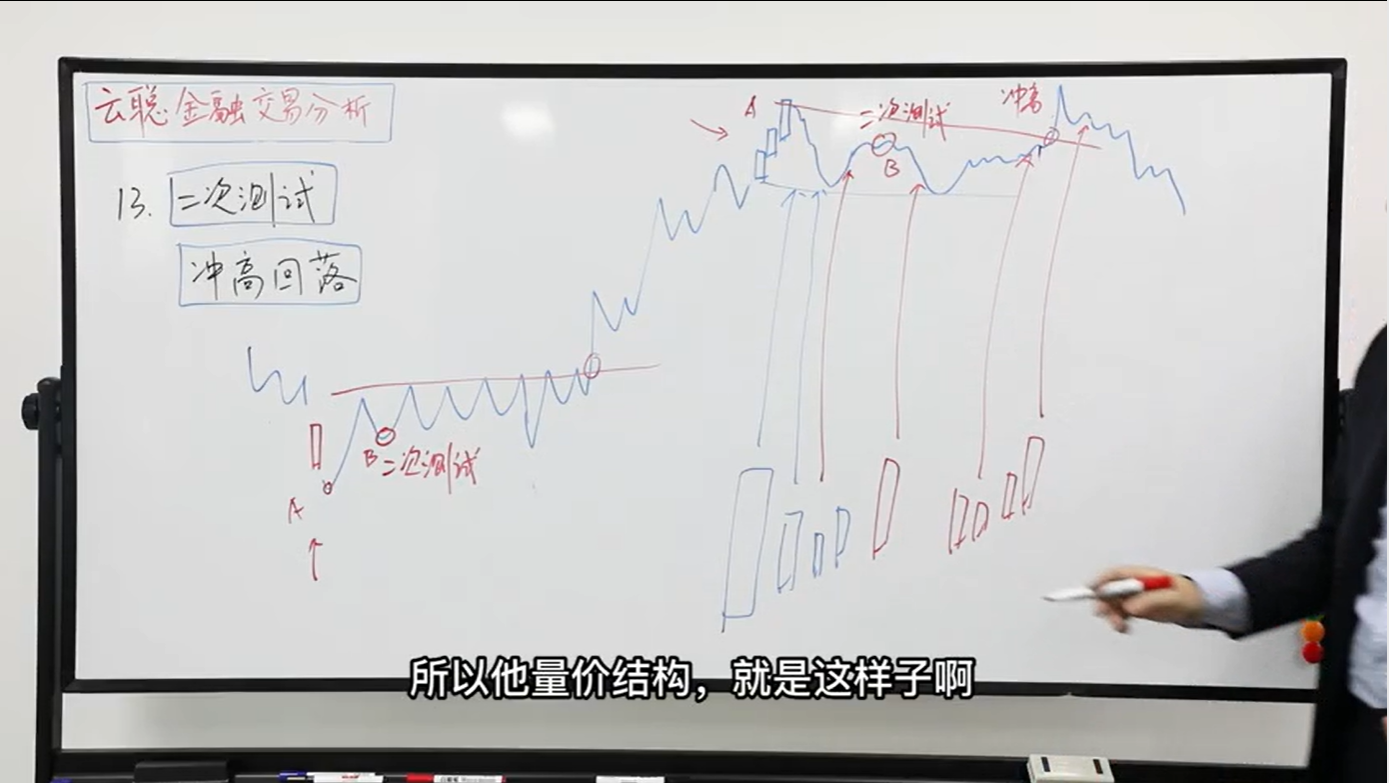 云聪金融交易分析
13. 二次测试
冲高回落
A
二次测试
B
冲高
B 二次测试
A
所以他量价结构，就是这样子啊